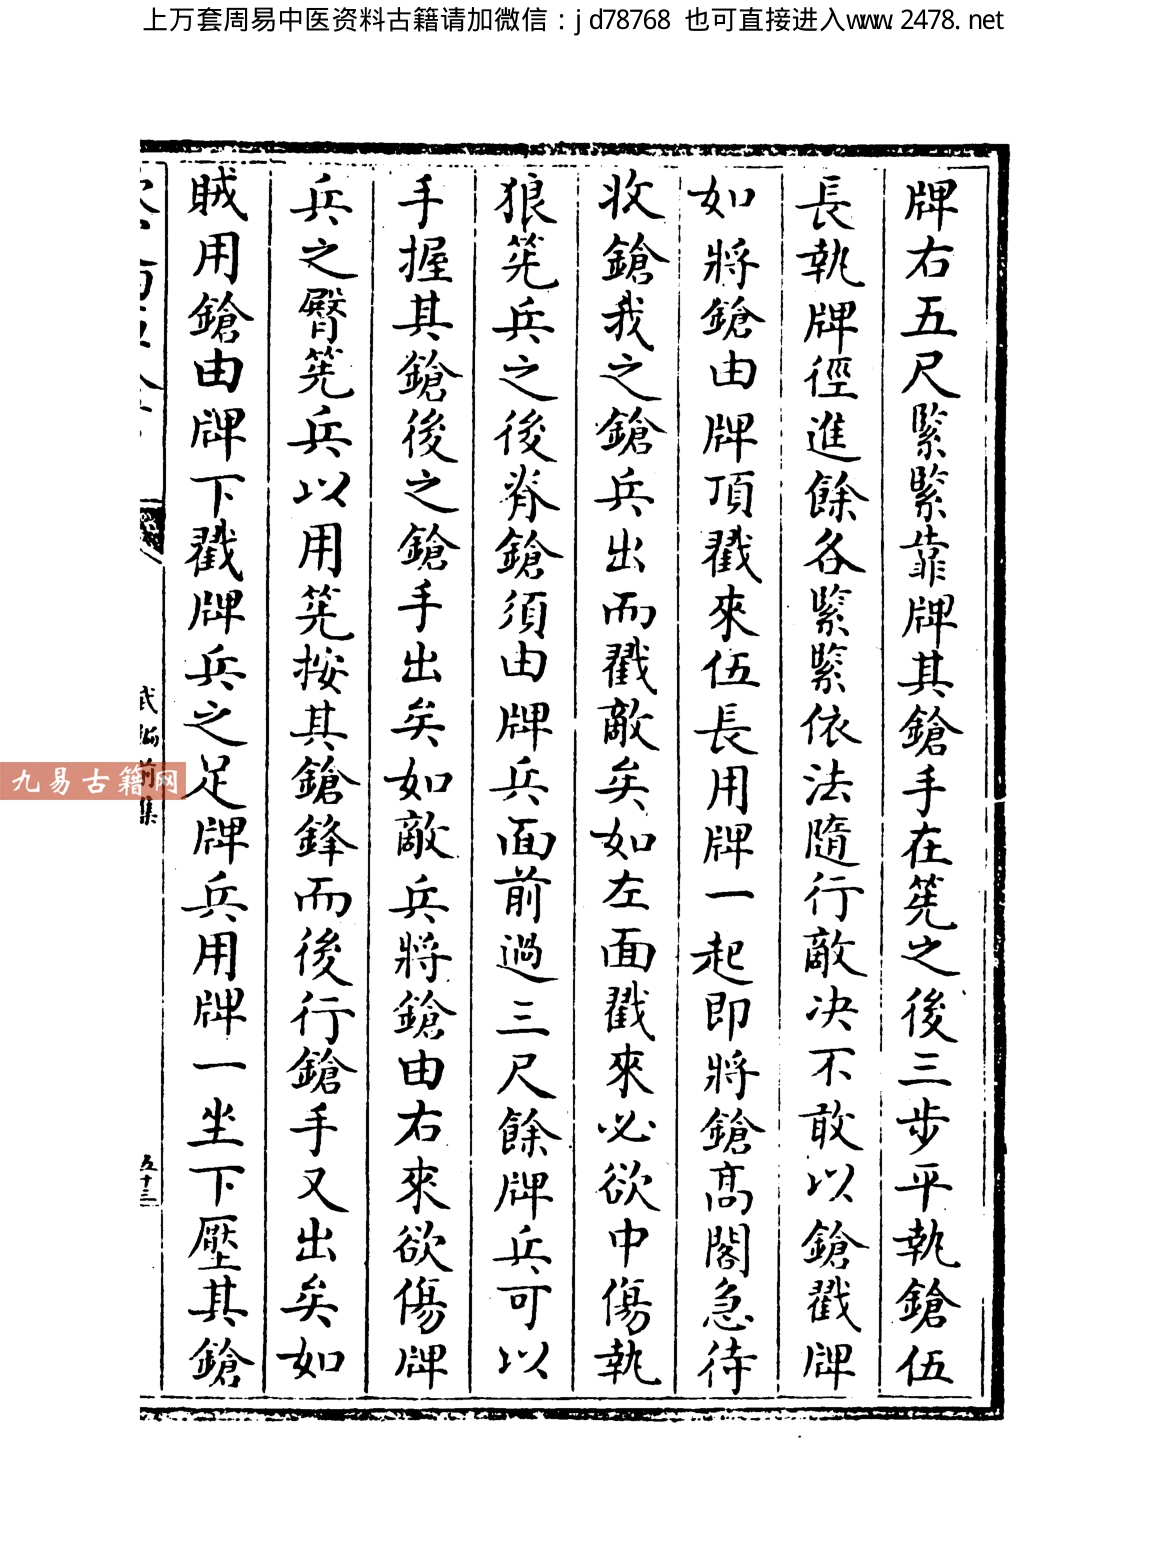 上万套周易中医资料古籍请加微信：jd78768 也可直接进入www.2478.net
牌右五尺緊緊靠牌其鎗手在筅之後三步平執鎗伍
長執牌徑進餘各緊緊依法隨行敵决不敢以鎗戳牌
如將鎗由牌頂戳來伍長用牌一起即將鎗高閣急待
收鎗我之鎗兵出而戳敵矣如左面戳來必欲中傷執
狼筅兵之後脊鎗須由牌兵面前過三尺餘牌兵可以
手握其鎗後之鎗手出矣如敵兵將鎗由右來欲傷牌
兵之臀筅兵以用筅按其鎗鋒而後行鎗手又出矣如
賊用鎗由牌下戳牌兵之足牌兵用牌一坐下壓其鎗
武編前集
五十三
九易古籍网